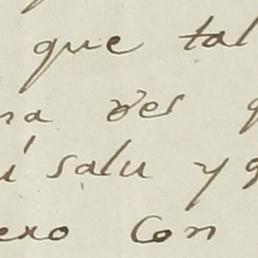 que tal
na ves q
i salu y q
ero con